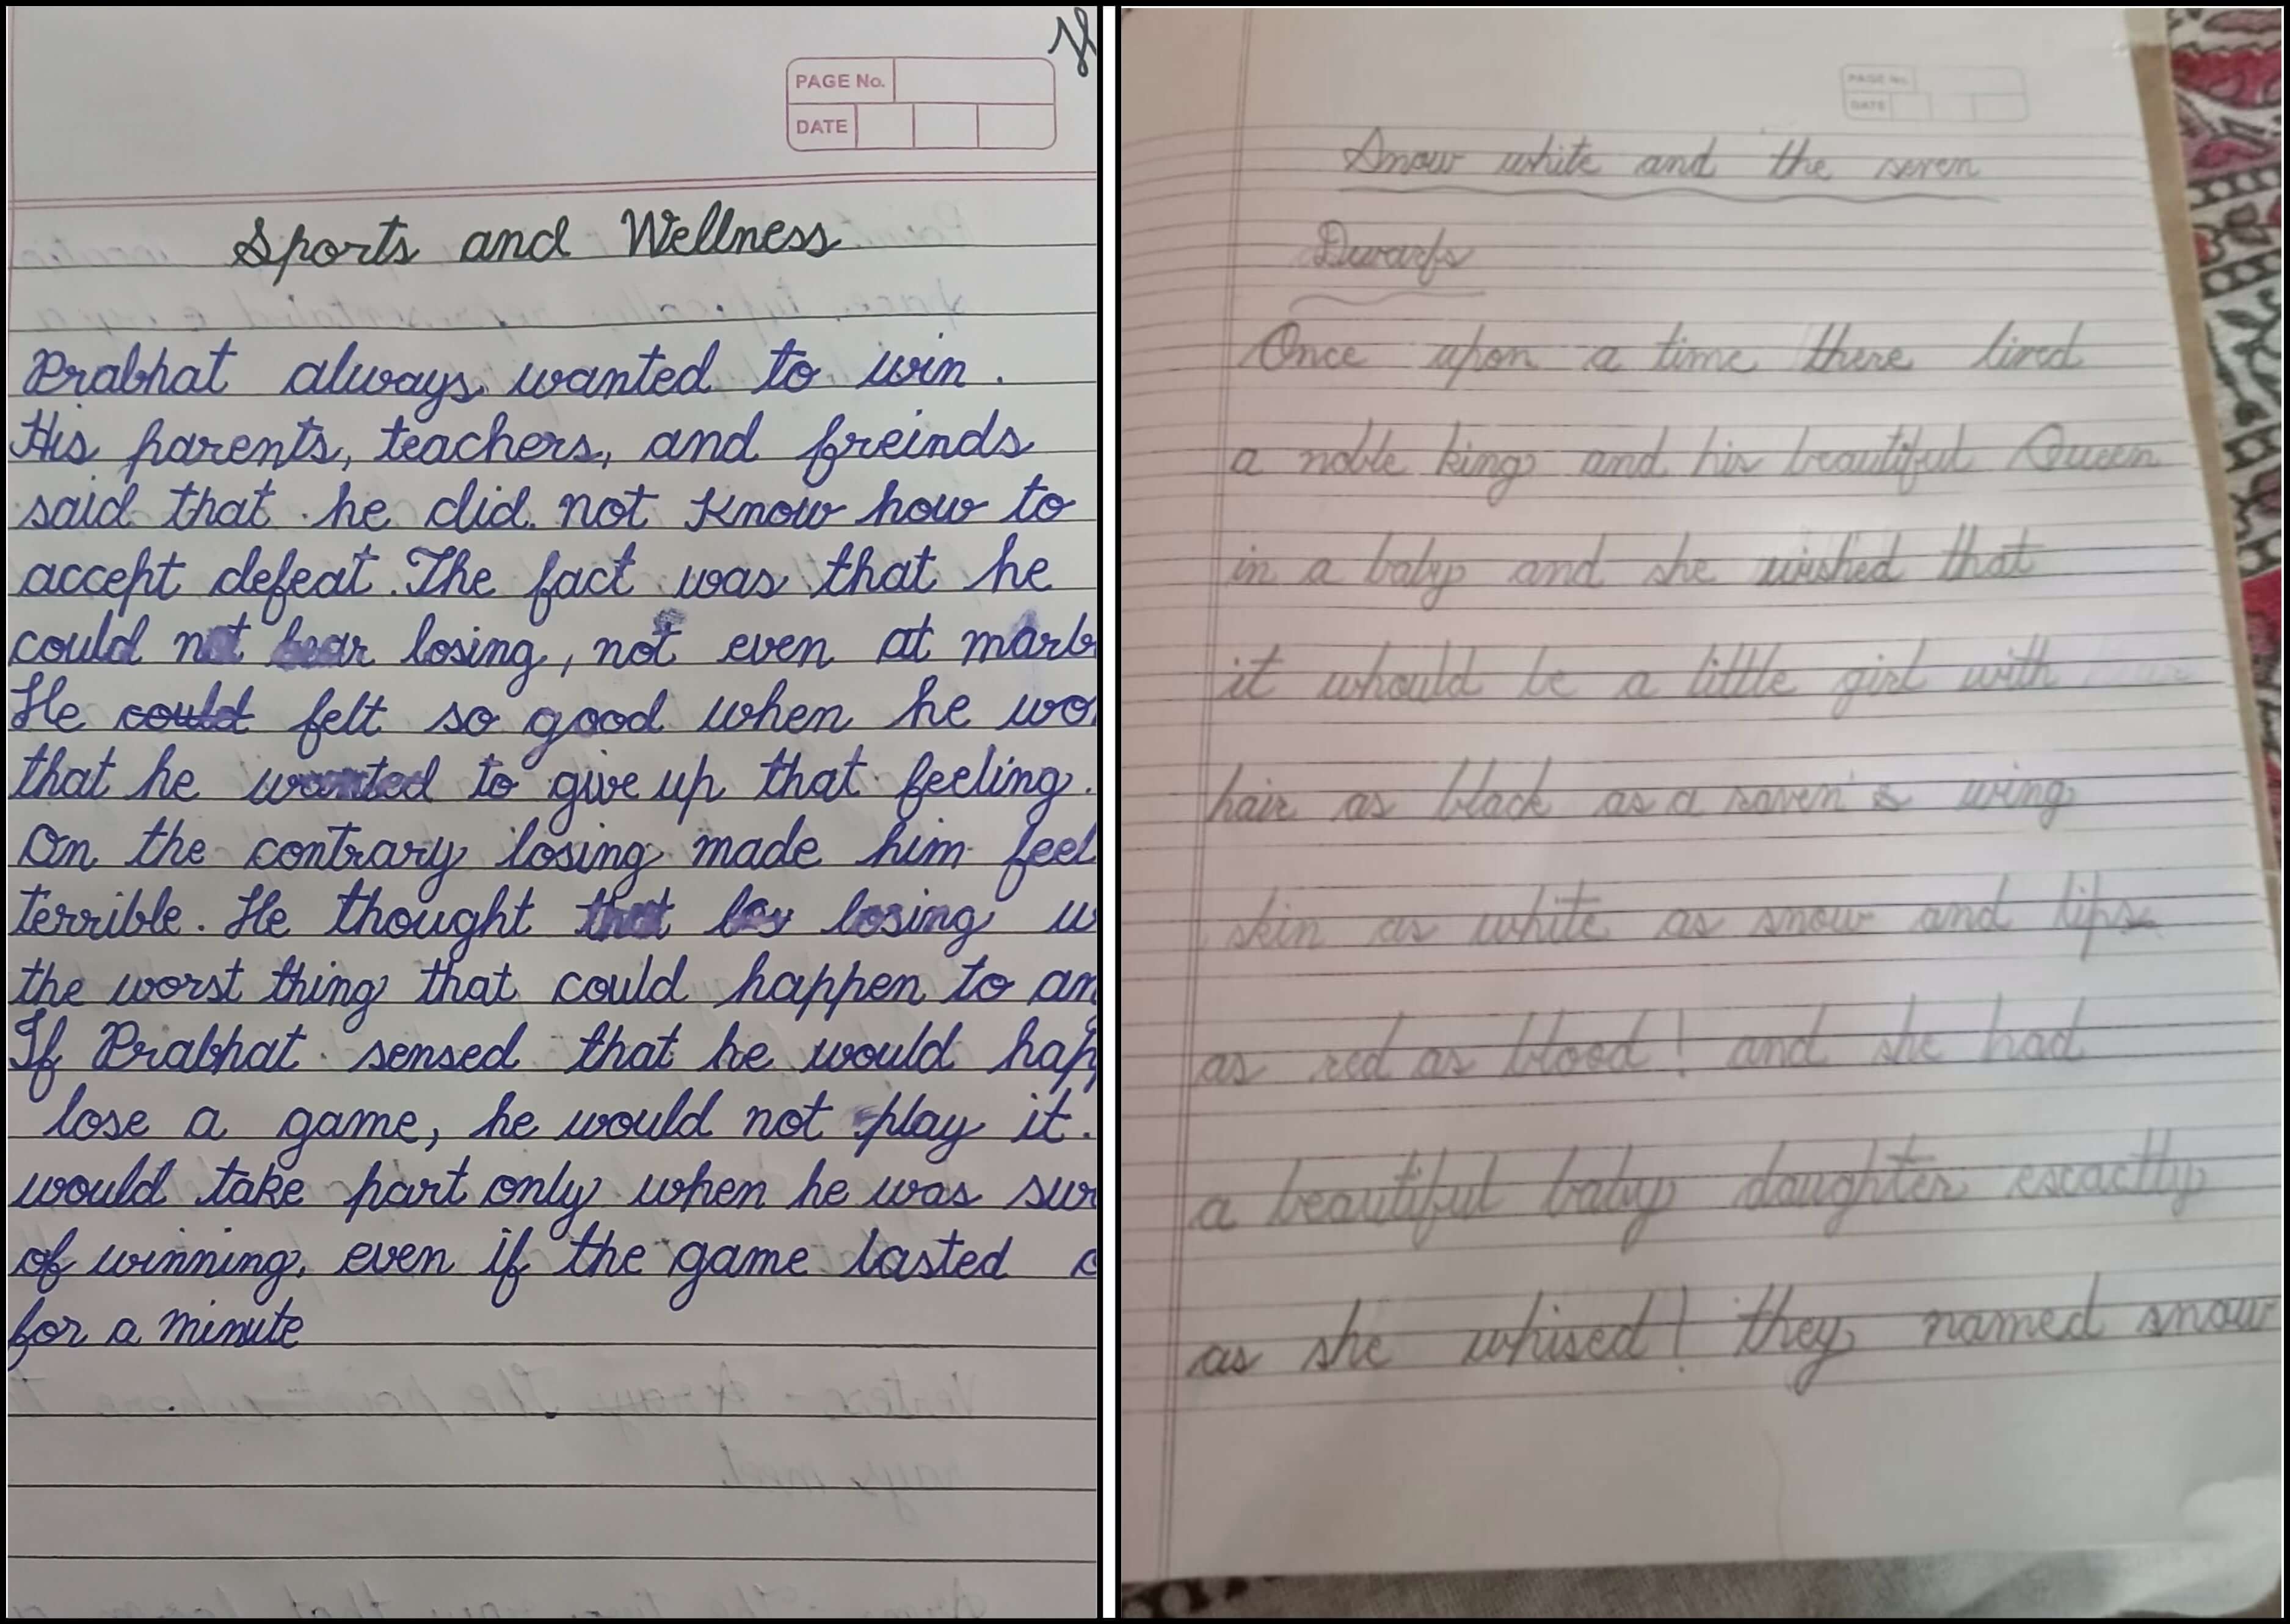 PAGE No.
DATE
Sports and Wellness
Prabhat always wanted to win.
His parents, teachers, and freinds
said that he did not know how to
accept defeat. The fact was that he
could not bear losing, not even at marb
He could felt so good when he wo
that he wanted to give up that feeling.
On the contrary losing made him feel
terrible. He thought that losing w
the worst thing that could happen to an
If Prabhat sensed that he would hap
lose a game, he would not play it.
would take part only when he was sur
of winning, even if the game lasted o
for a minute
PAGE No.
DATE
Snow white and the seven
Dwarfs
Once upon a time there lived
a noble king and his beautiful Queen
in a baby and she wished that
it whould be a little girl with
hair as black as a raven's wing
skin as white as snow and lips
as red as blood! and she had
a beautiful baby daughter escactly
as she whised! they named snow